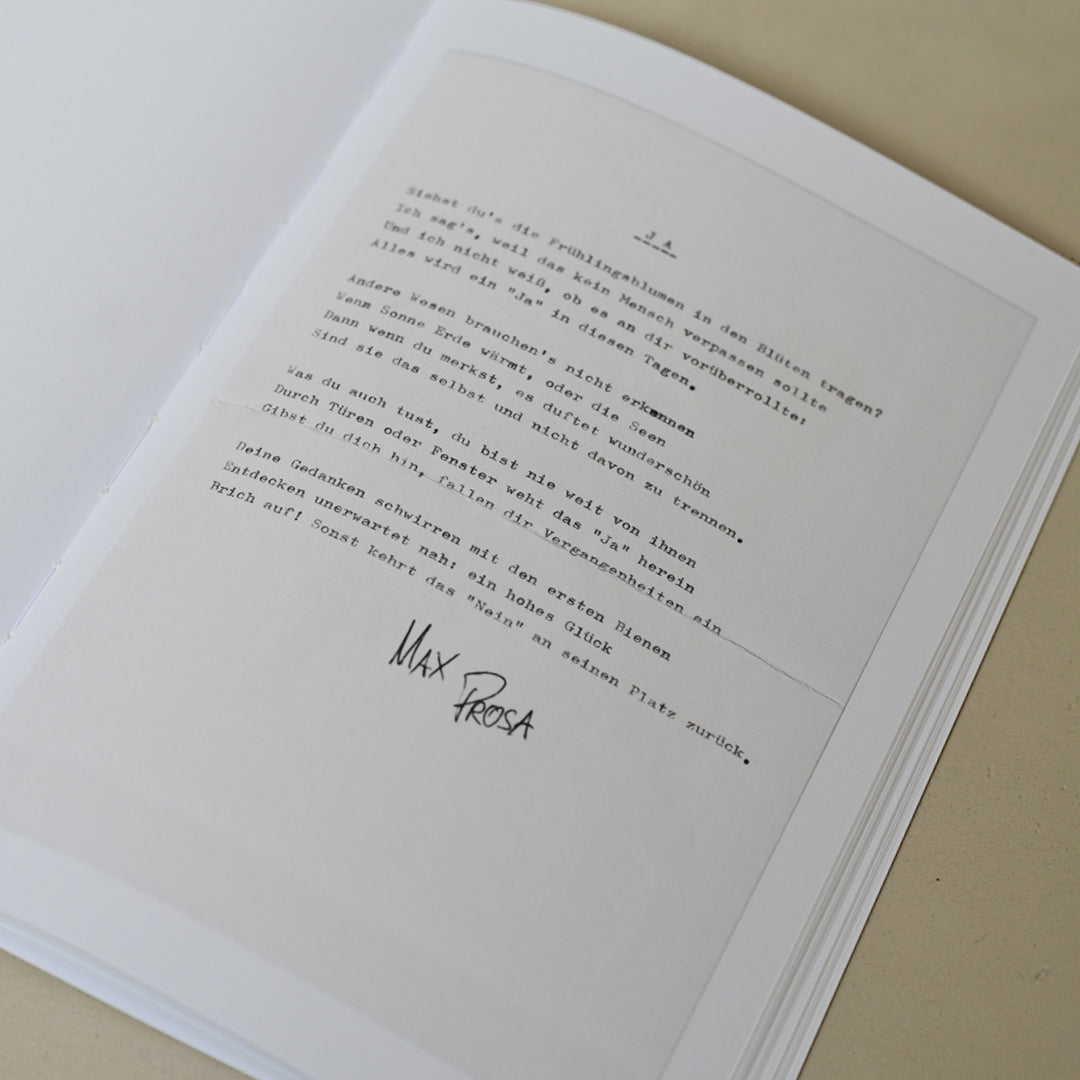 JA
Siehst du's die Frühlingsblumen in den Blüten tragen?
Ich sag's, weil das kein Mensch verpassen sollte
Und ich nicht weiß, ob es an dir vorüberrollte:
Alles wird ein "Ja" in diesen Tagen.
Andere Wesen brauchen's nicht erkennen
Wenn Sonne Erde wärmt, oder die Seen
Dann wenn du merkst, es duftet wunderschön
Sind sie das selbst und nicht davon zu trennen.
Was du auch tust, du bist nie weit von ihnen
Durch Türen oder Fenster weht das "Ja" herein
Gibst du dich hin, fallen dir Vergangenheiten ein
Deine Gedanken schwirren mit den ersten Bienen
Entdecken unerwartet nah: ein hohes Glück
Brich auf! Sonst kehrt das "Nein" an seinen Platz zurück.
MAX
PROSA